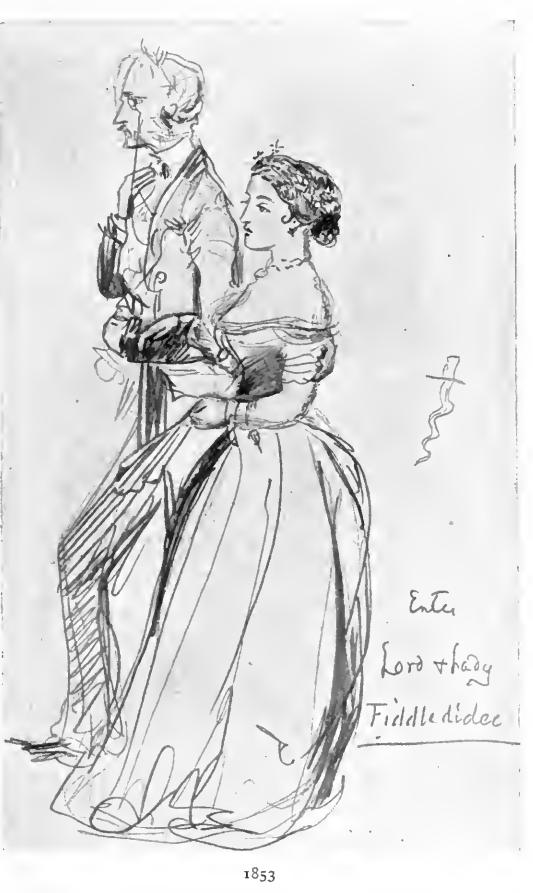 Enter
Lord & Lady
Fiddledidee
1853